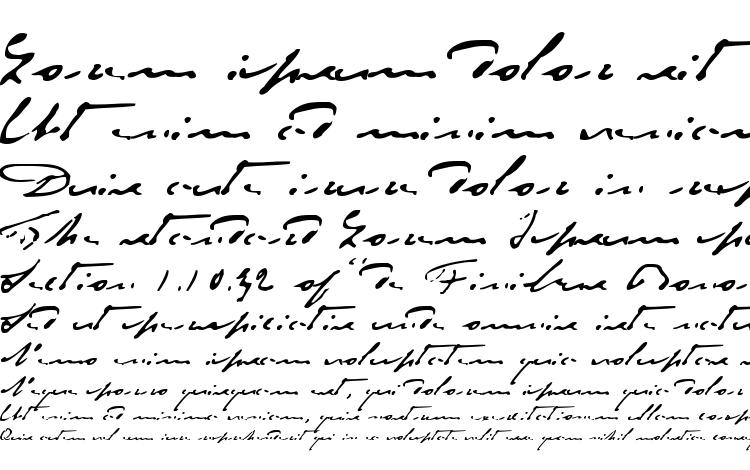 Lorem ipsum dolor sit
Ut enim ad minim veniam
Duis aute irure dolor in
The standard Lorem Ipsum
Section 1.10.32 of "de Finibus Bono
Sed ut perspiciatis unde omnis iste natu
Nemo enim ipsam voluptatem quia voluptas
Neque porro quisquam est, qui dolorem ipsum quia dolor
Ut enim ad minima veniam, quis nostrum exercitationem ullam corp
Quis autem vel eum iure reprehenderit qui in ea voluptate velit esse quam nihil molestiae conseq